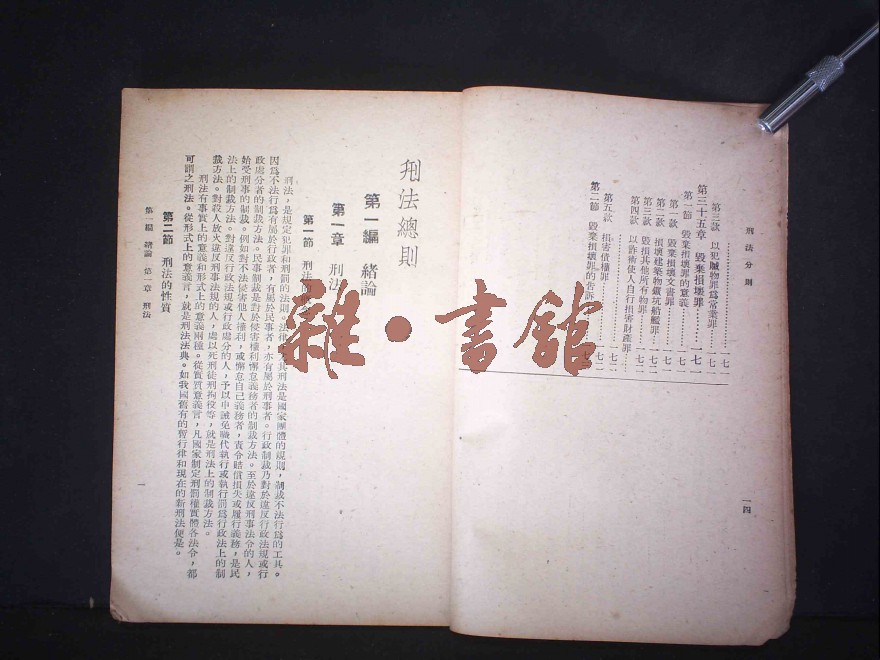 刑法分則
第三款 以犯贓物罪爲常業罪……一七一
第三十五章 毀棄損壞罪……一七一
第一節 毀棄損壞罪的意義……一七一
第一款 毀棄損壞文書罪……一七一
第二款 損壞建築物鑛坑船艦罪……一七二
第三款 毀損其他所有物罪……一七二
第四款 以詐術使人自行損害財產罪……一七二
第五款 損害債權罪……一七二
第二節 毀棄損壞罪的告訴
一四
刑法總則
第一編 緒論
第一章 刑法
第一節 刑法的
刑法,是規定犯罪和刑罰的法則。法律
其刑法是國家團體的規則,制裁不法行爲的工具。
因爲不法行爲有屬於行政者,有屬於民事者,亦有屬於刑事者。行政制裁乃對於違反行政法規或行
政處分者的制裁方法。民事制裁是對於侵害權利懈怠義務者的制裁方法。至於違反刑事法令的人,
始受刑事的制裁。例如對不法侵害他人權利,或懈怠自己義務者,責令賠償損失或履行義務,是民
法上的制裁方法。對違反行政法規或行政處分的人,予以申誡免職代執行或執行罰爲行政法上的制
裁方法。對殺人放火違反刑事法規的人,處以死刑徒刑拘役等,就是刑法上的制裁方法。
刑法有事實上的意義和形式上的意義兩種。從實質意義言,凡國家制定刑罰權實體各法令,都
可謂之刑法。從形式上的意義言,就是刑法法典。如我國舊有的暫行律和現在的新刑法便是。
第二節 刑法的性質
第一編 緒論 第一章 刑法
一
雜·書館